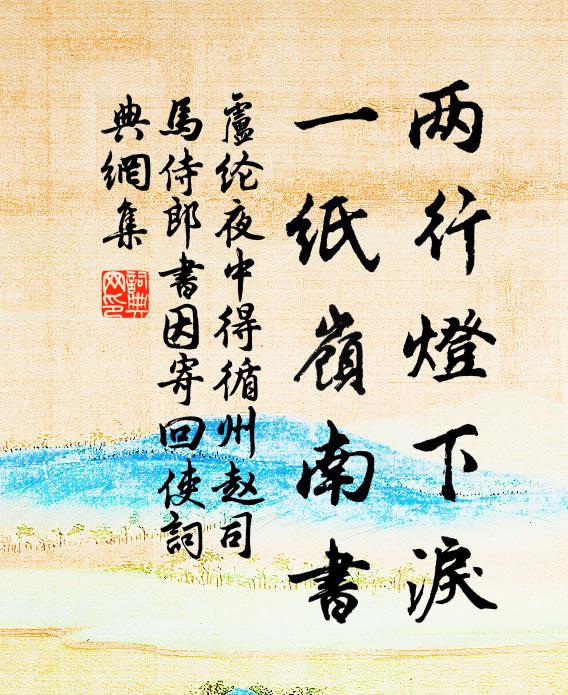 两行燈下淚
一紙嶺南書
盧纶夜中得循州赵司
馬侍郎書因寄回使詞
典網集
詞典
网印